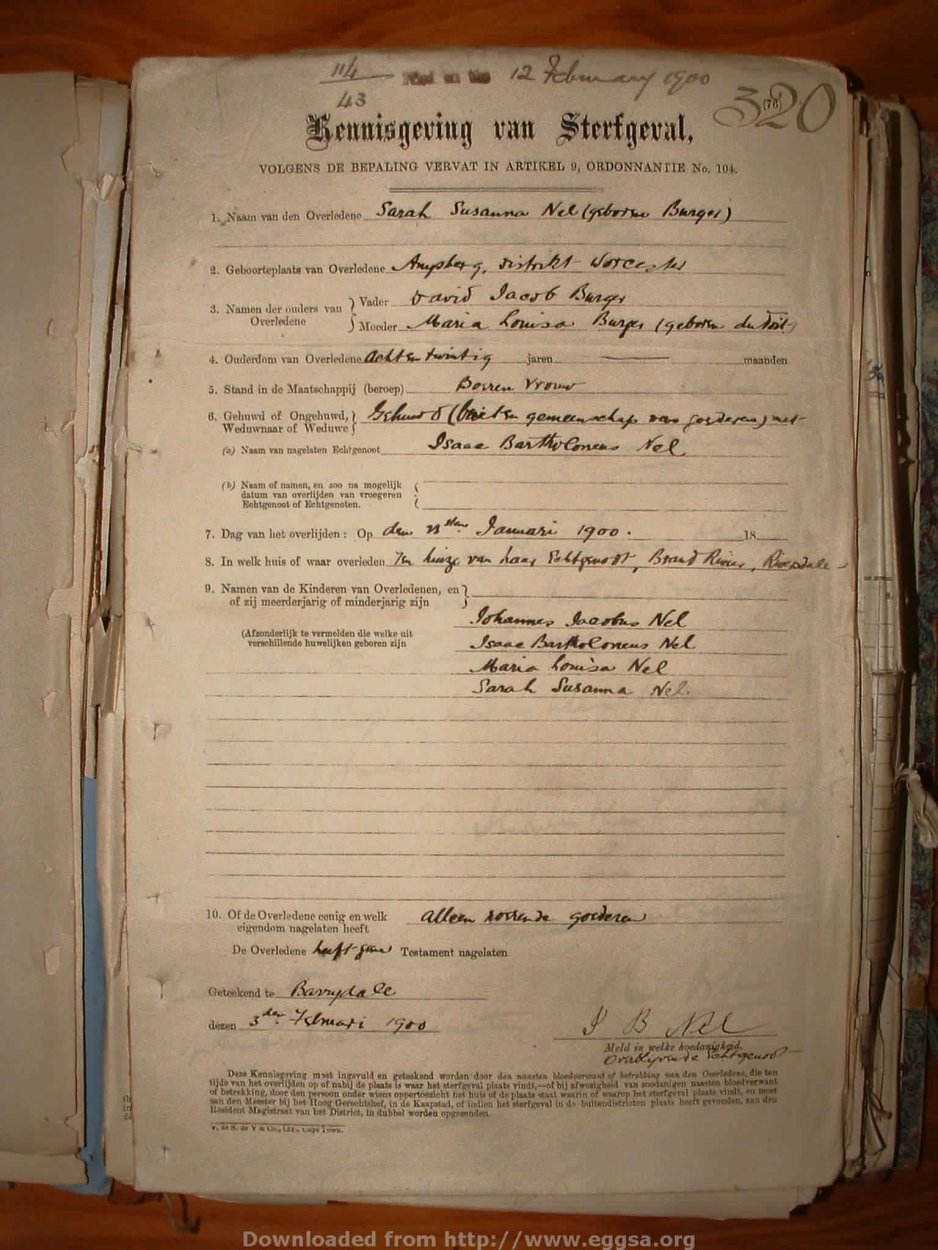 114 Filed on the 12 February 1900
43
320
(76)
Kennisgeving van Sterfgeval,
VOLGENS DE BEPALING VERVAT IN ARTIKEL 9, ORDONNANTIE No. 104.
1. Naam van den Overledene Sarah Susanna Nel (geboren Burger)
2. Geboorteplaats van Overledene distrikt Worcester
3. Namen der ouders van Overledene } Vader David Jacob Burger
Moeder Maria Louisa Burger (geboren du Toit)
4. Ouderdom van Overledene Acht en twintig jaren — maanden
5. Stand in de Maatschappij (beroep) Boeren Vrouw
6. Gehuwd of Ongehuwd, Weduwnaar of Weduwe } Gehuwd (buiten gemeenschap van goederen) met
(a) Naam van nagelaten Echtgenoot Isaac Bartholomeus Nel
(b) Naam of namen, en zoo na mogelijk
datum van overlijden van vroegeren
Echtgenoot of Echtgenoten.
7. Dag van het overlijden : Op den sten Januari 1900. 18
8. In welk huis of waar overleden Ten huize van haar Echtgenoot, Brand Rivier, Riversdale
9. Namen van de Kinderen van Overledenen, en
of zij meerderjarig of minderjarig zijn
Johannes Jacobus Nel
(Afzonderlijk te vermelden die welke uit
verschillende huwelijken geboren zijn
Isaac Bartholomeus Nel
Maria Louisa Nel
Sarah Susanna Nel.
10. Of de Overledene eenig en welk
eigendom nagelaten heeft alleen roerende goederen
De Overledene heeft geen Testament nagelaten
Geteekend te Barrydale
dezen 3den Februari 1900
I B Nel
Meld in welke hoedanigheid.
Overblijvende Echtgenoot
Deze Kennisgeving moet ingevuld en geteekend worden door den naasten bloedverwant of betrekking van den Overledene, die ten
tijde van het overlijden op of nabij de plaats is waar het sterfgeval plaats vindt,—of bij afwezigheid van zoodanigen naasten bloedverwant
of betrekking, door den persoon onder wiens oppertoezicht het huis of de plaats staat waarin of waarop het sterfgeval plaats vindt, en moet
aan den Meester bij het Hoog Gerechtshof, in de Kaapstad, of indien het sterfgeval in de buitendistricten plaats heeft gevonden, aan den
Resident Magistraat van het District, in dubbel worden opgezonden.
V. de S. de V & Co., Ltd., Cape Town.
Downloaded from http://www.eggsa.org